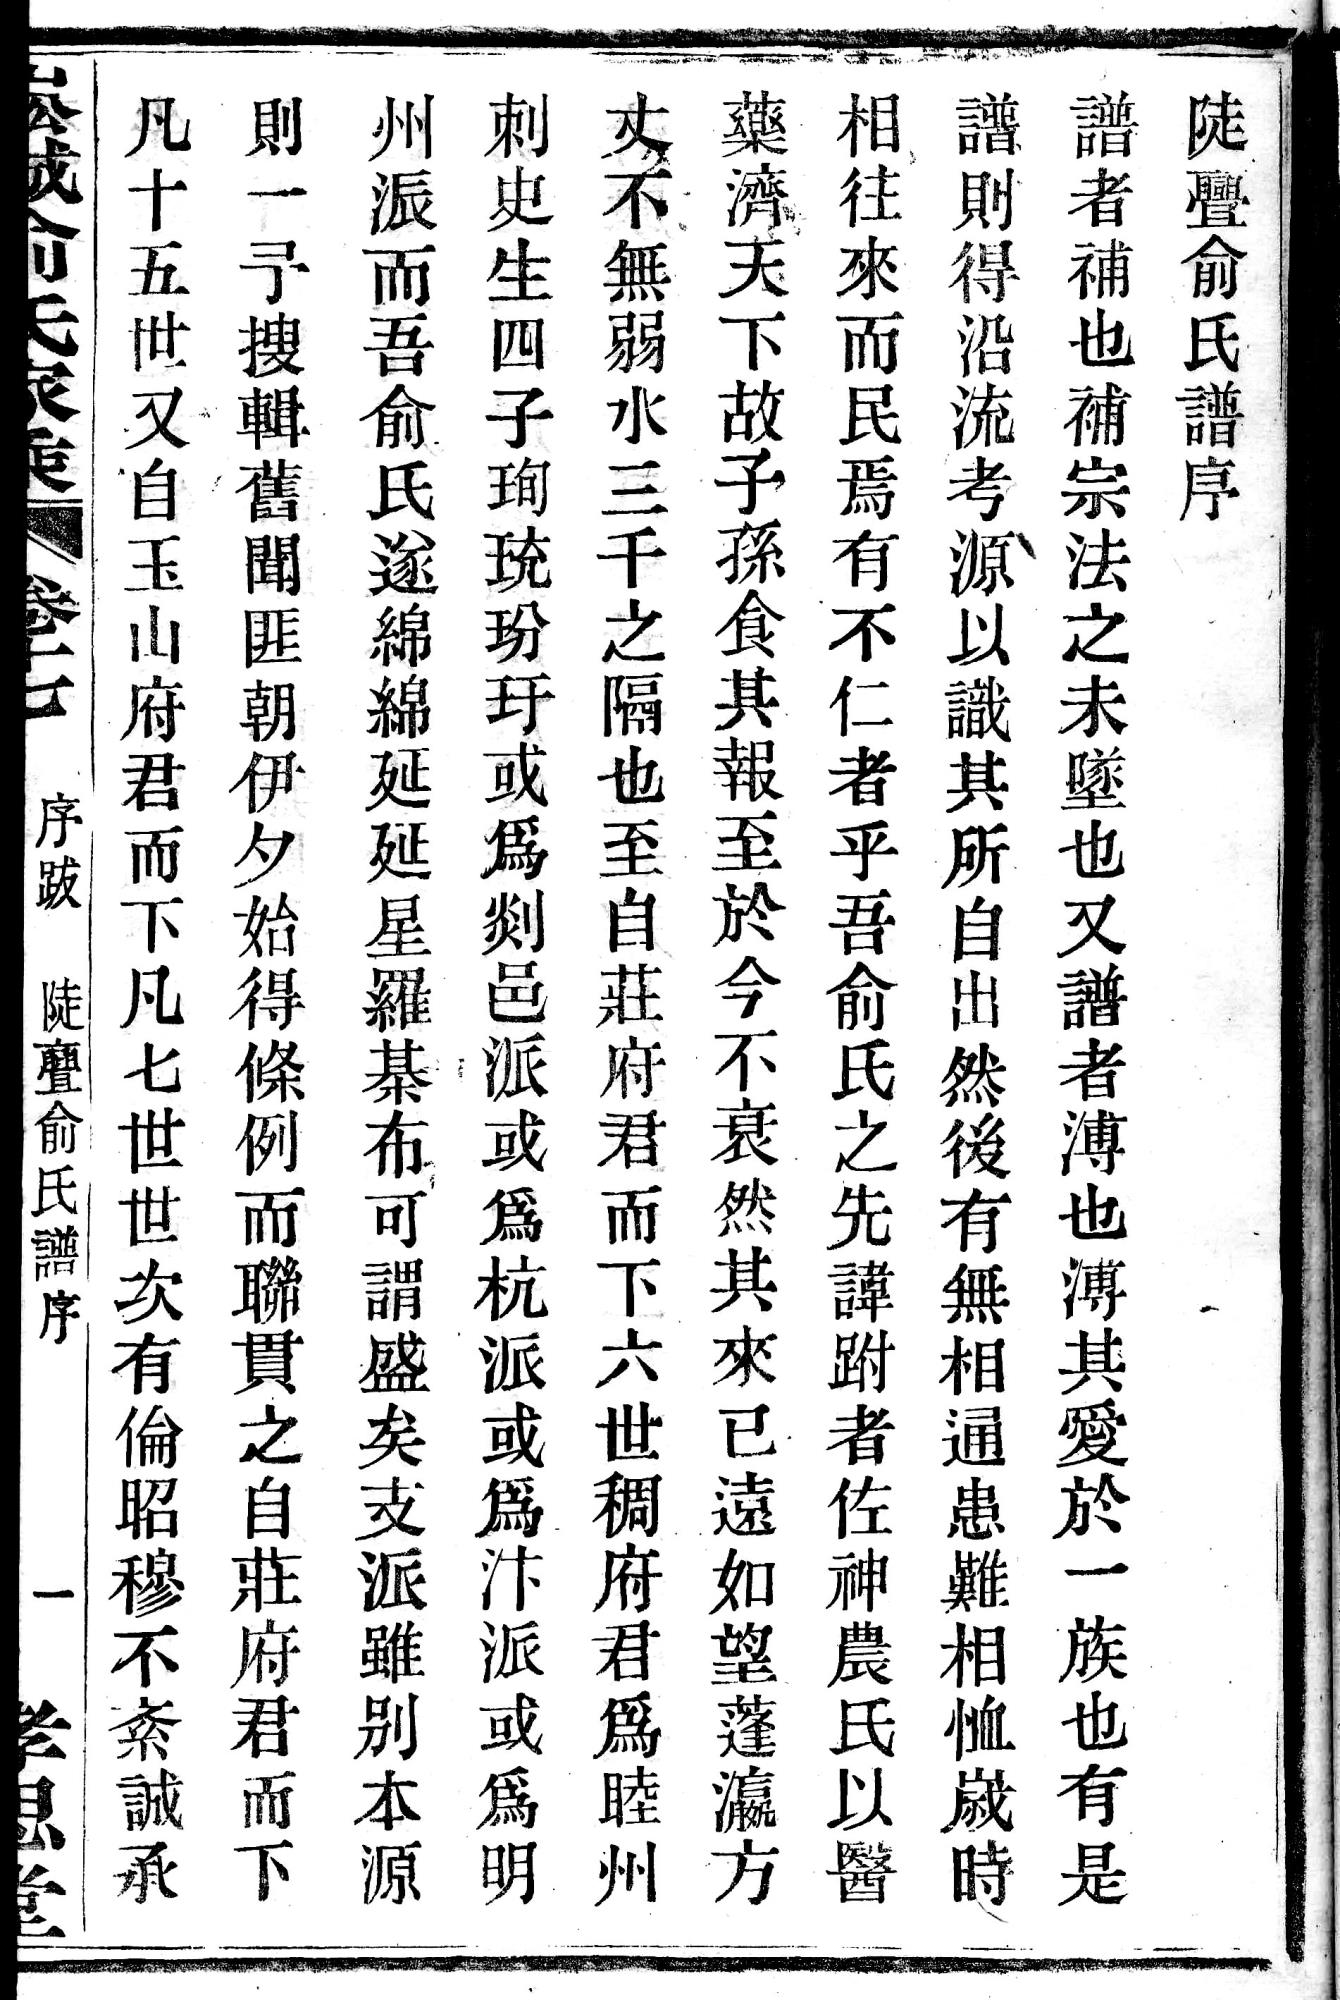 陡亹俞氏譜序
譜者補也補宗法之未墜也又譜者溥也溥其愛於一族也有是
譜則得沿流考源以識其所自出然後有無相通患難相恤嵗時
相往來而民焉有不仁者乎吾俞氏之先諱跗者佐神農氏以醫
藥濟天下故子孫食其報至於今不衰然其來已遠如望蓬瀛方
丈不無弱水三千之隔也至自莊府君而下六世稠府君爲睦州
刺史生四子珣珫玢玗或爲剡邑派或爲杭派或爲汴派或爲明
州派而吾俞氏遂綿綿延延星羅棊布可謂盛矣支派雖别本源
則一予搜輯舊聞匪朝伊夕始得條例而聯貫之自莊府君而下
凡十五世又自玉山府君而下凡七世世次有倫昭穆不紊誠承
俞氏家乘 卷十七 序跋 陡亹俞氏譜序 一 孝思堂